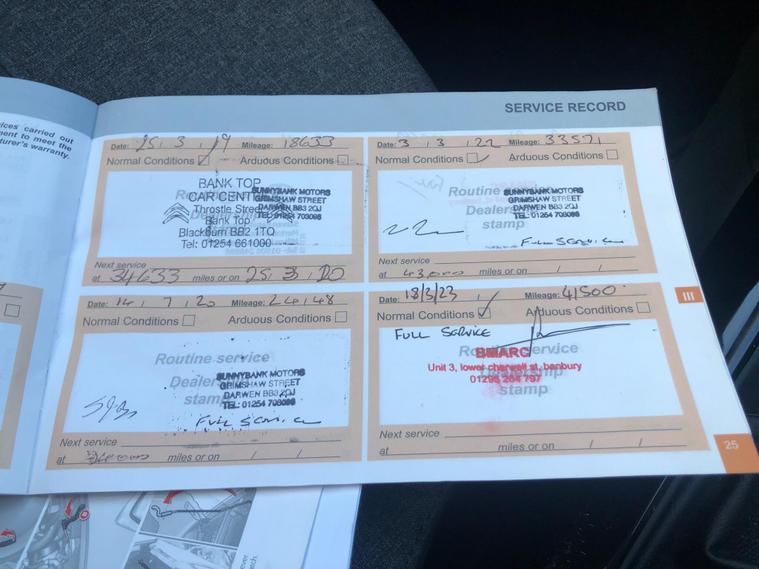 ices carried out
ment to meet the
turer's warranty.
SERVICE RECORD
Date: 25 . 3 . 19 Mileage: 18633
Normal Conditions Arduous Conditions
BANK TOP
CAR CENT
Throstle Street
Bank Top
Blackburn BB2 1TQ
Tel: 01254 661000
SUNNYBANK MOTORS
GRIMSHAW STREET
DARWEN BB3 2QJ
TEL: 01254 703098
Next service
at 34633 miles or on 25 . 3 . 20
Date: 3 . 3 . 22 Mileage: 33571
Normal Conditions Arduous Conditions
Routine
Dealer
stamp
SUNNYBANK MOTORS
GRIMSHAW STREET
DARWEN BB3 2QJ
TEL: 01254 703098
Full Service
Next service
at 43,000 miles or on / /
Date: 14 . 7 . 20 Mileage: 24148
Normal Conditions Arduous Conditions
Routine service
Dealer
stamp
SUNNYBANK MOTORS
GRIMSHAW STREET
DARWEN BB3 2QJ
TEL: 01254 703098
Full Service
Next service
at miles or on / /
Date: 18/3/23 Mileage: 41500
Normal Conditions Arduous Conditions
FULL SERVICE
Routine service
Dealership
stamp
BMARC
Unit 3, lower cherwell st, banbury
01295 264 797
Next service
at miles or on / /
III
25